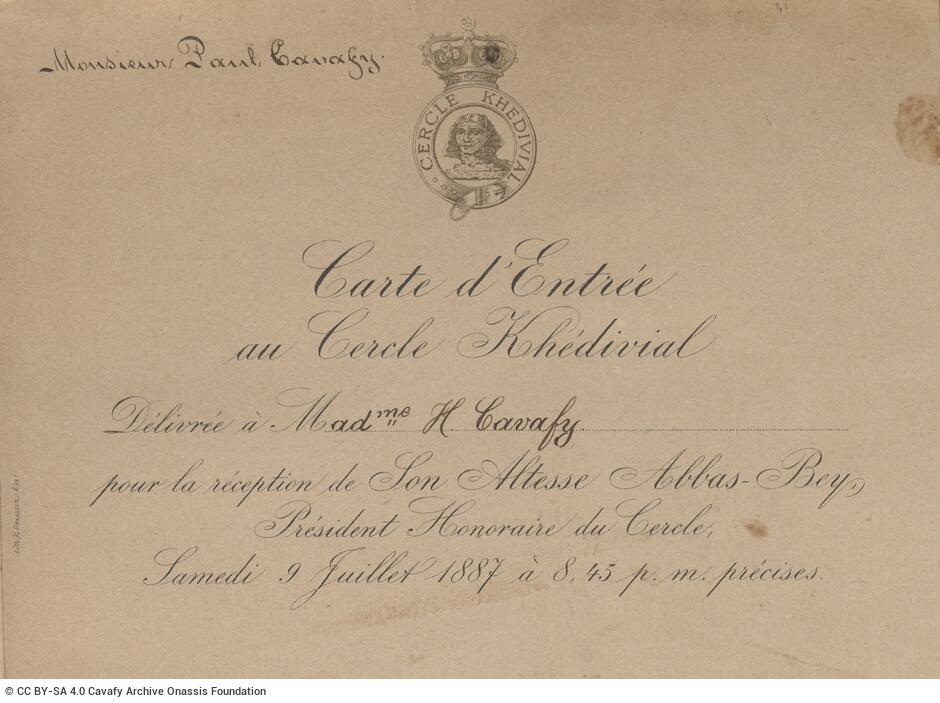 Monsieur Paul Cavafy.
CERCLE KHEDIVIAL
Carte d'Entrée
au Cercle Khédivial
Délivrée à Madme H. Cavafy
pour la réception de Son Altesse Abbas-Bey,
Président Honoraire du Cercle,
Samedi 9 Juillet 1887 à 8,45 p. m. précises.
© CC BY-SA 4.0 Cavafy Archive Onassis Foundation